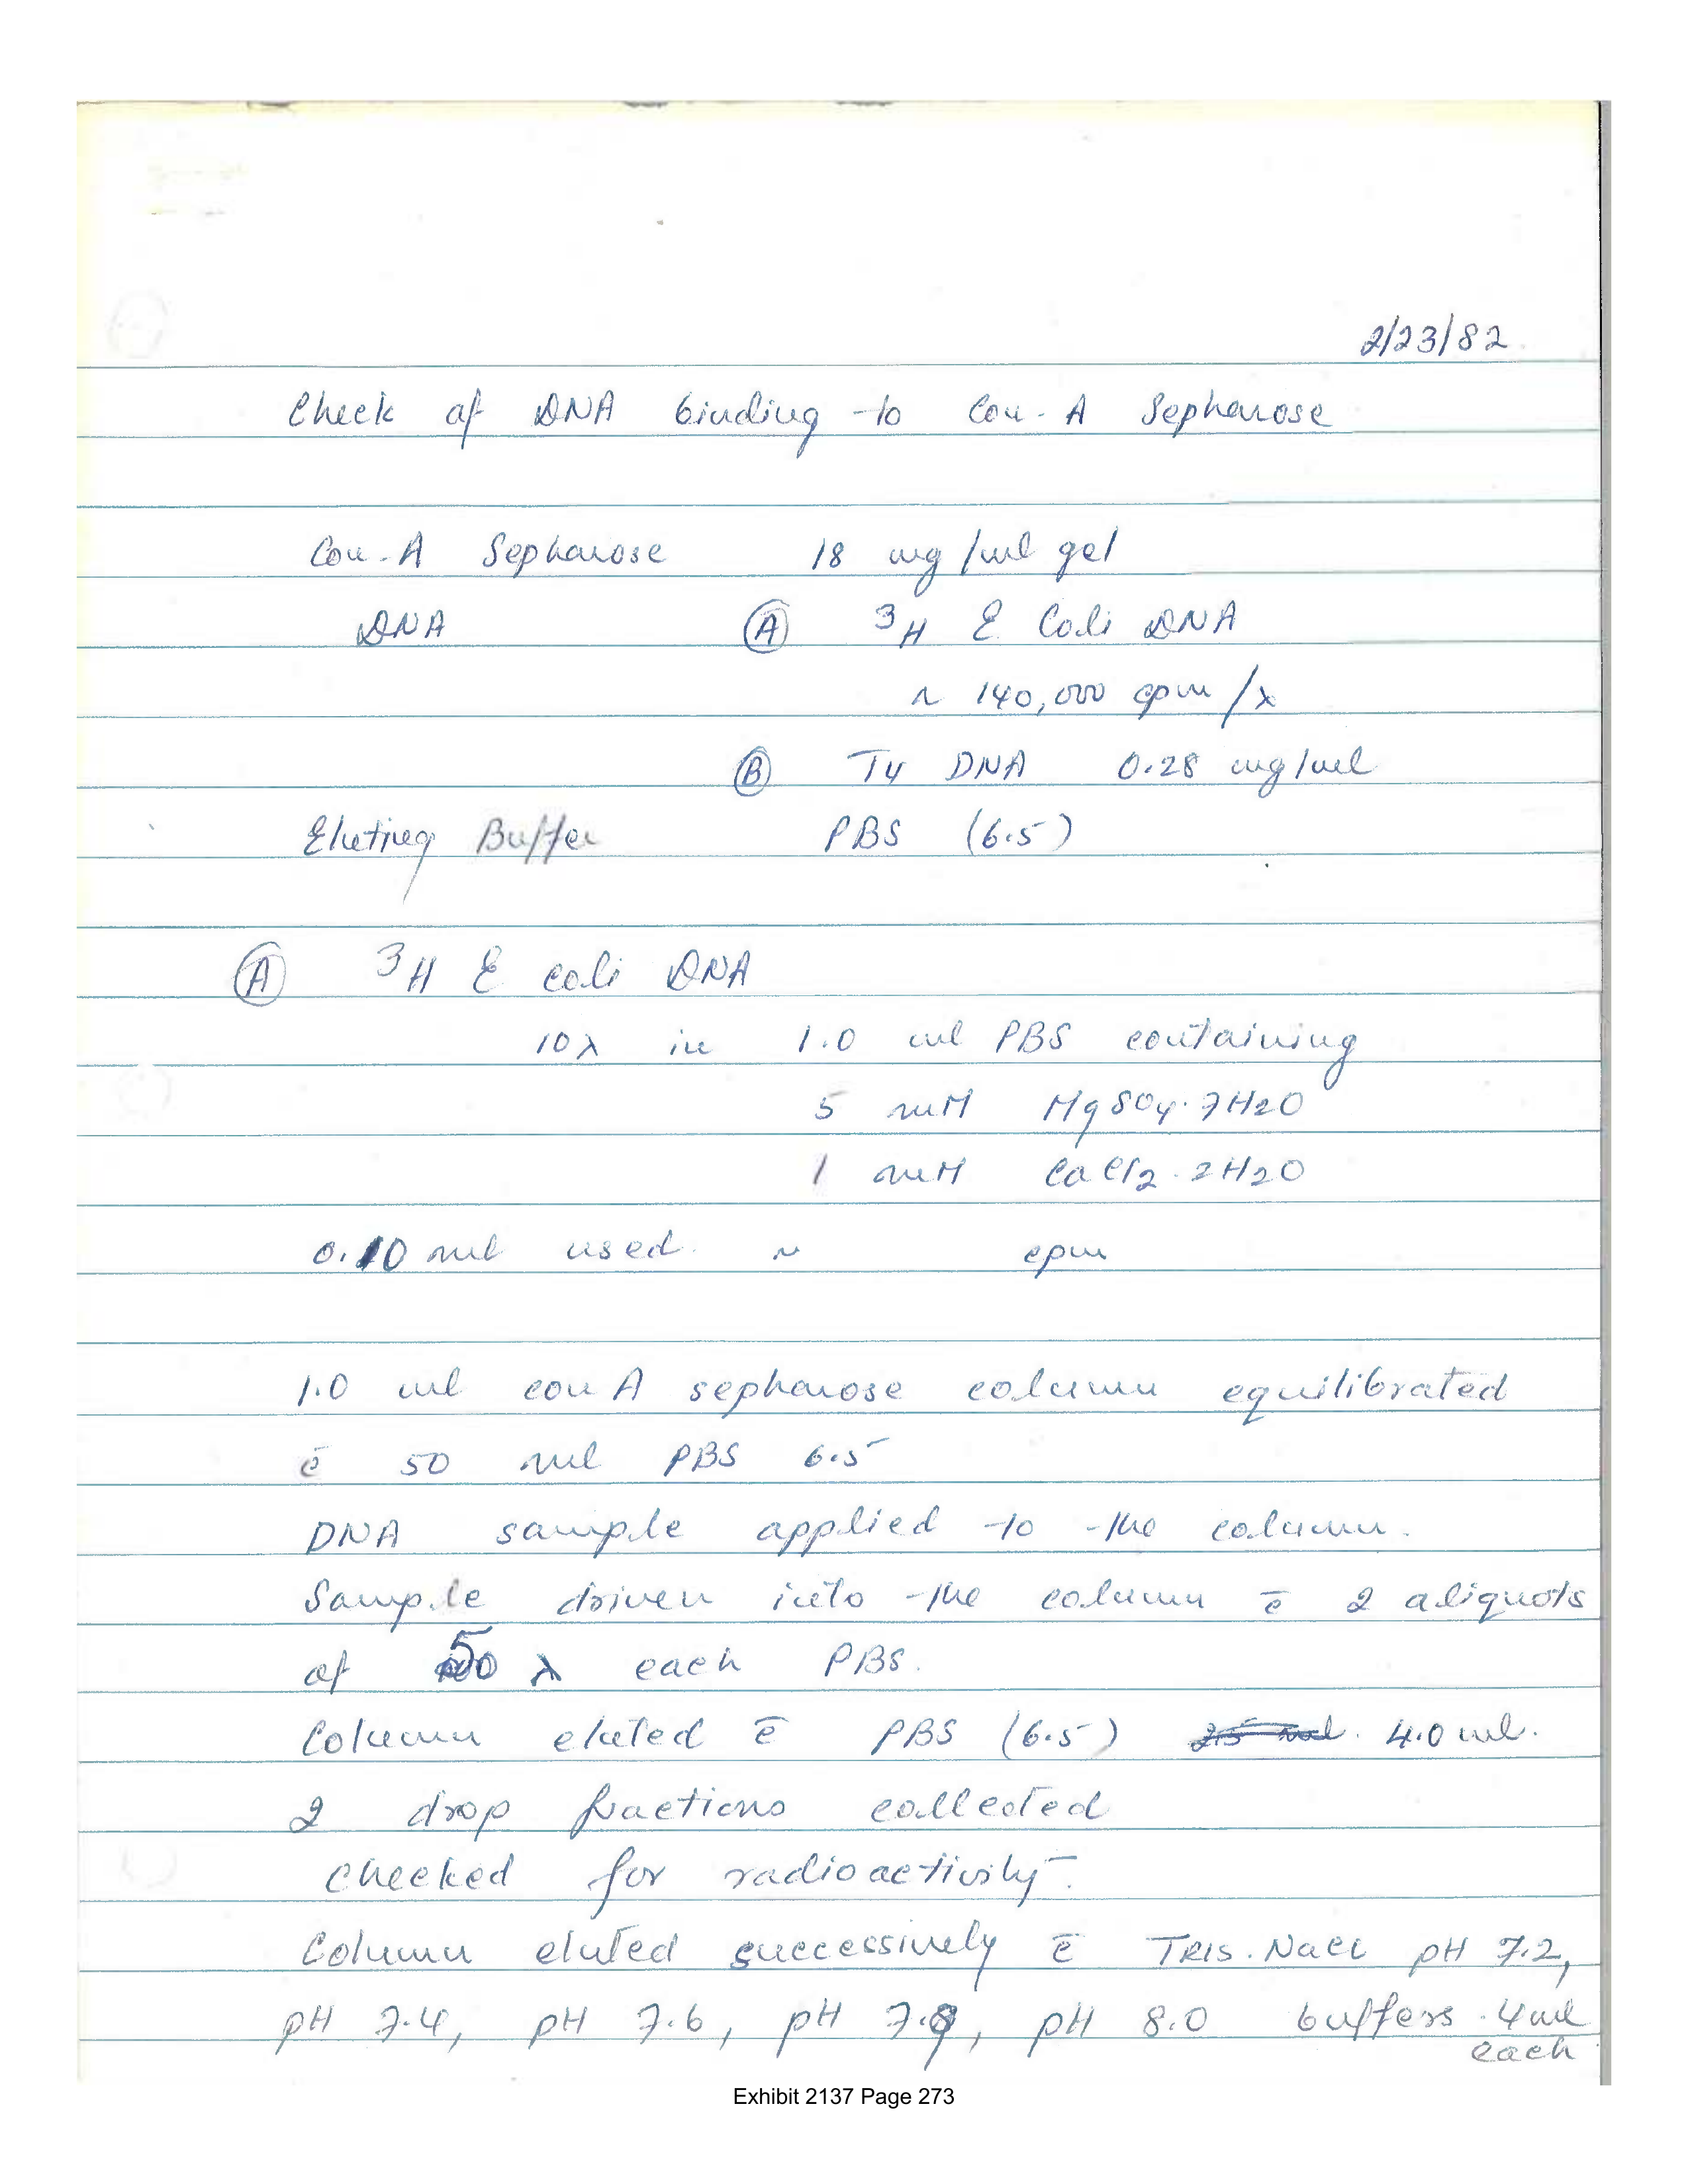 2/23/82
Check of DNA binding to Con-A Sepharose
Con-A Sepharose 18 mg/ml gel
DNA Ⓐ ³H E Coli DNA
~ 140,000 cpm/λ
Ⓑ T4 DNA 0.28 mg/ml
Eluting Buffer PBS (6.5)
Ⓐ ³H E coli DNA
10λ in 1.0 ml PBS containing
5 mM MgSO4·7H2O
1 mM CaCl2·2H2O
0.10 ml used ~ cpm
1.0 ml con A sepharose column equilibrated
c̄ 50 ml PBS 6.5
DNA sample applied to the column.
Sample driven into the column c̄ 2 aliquots
of 50 λ each PBS.
Column eluted c̄ PBS (6.5) 4.0 ml.
2 drop fractions collected
checked for radioactivity.
Column eluted successively c̄ TRIS. NaCl pH 7.2,
pH 7.4, pH 7.6, pH 7.8, pH 8.0 buffers. 4 ml
each
Exhibit 2137 Page 273